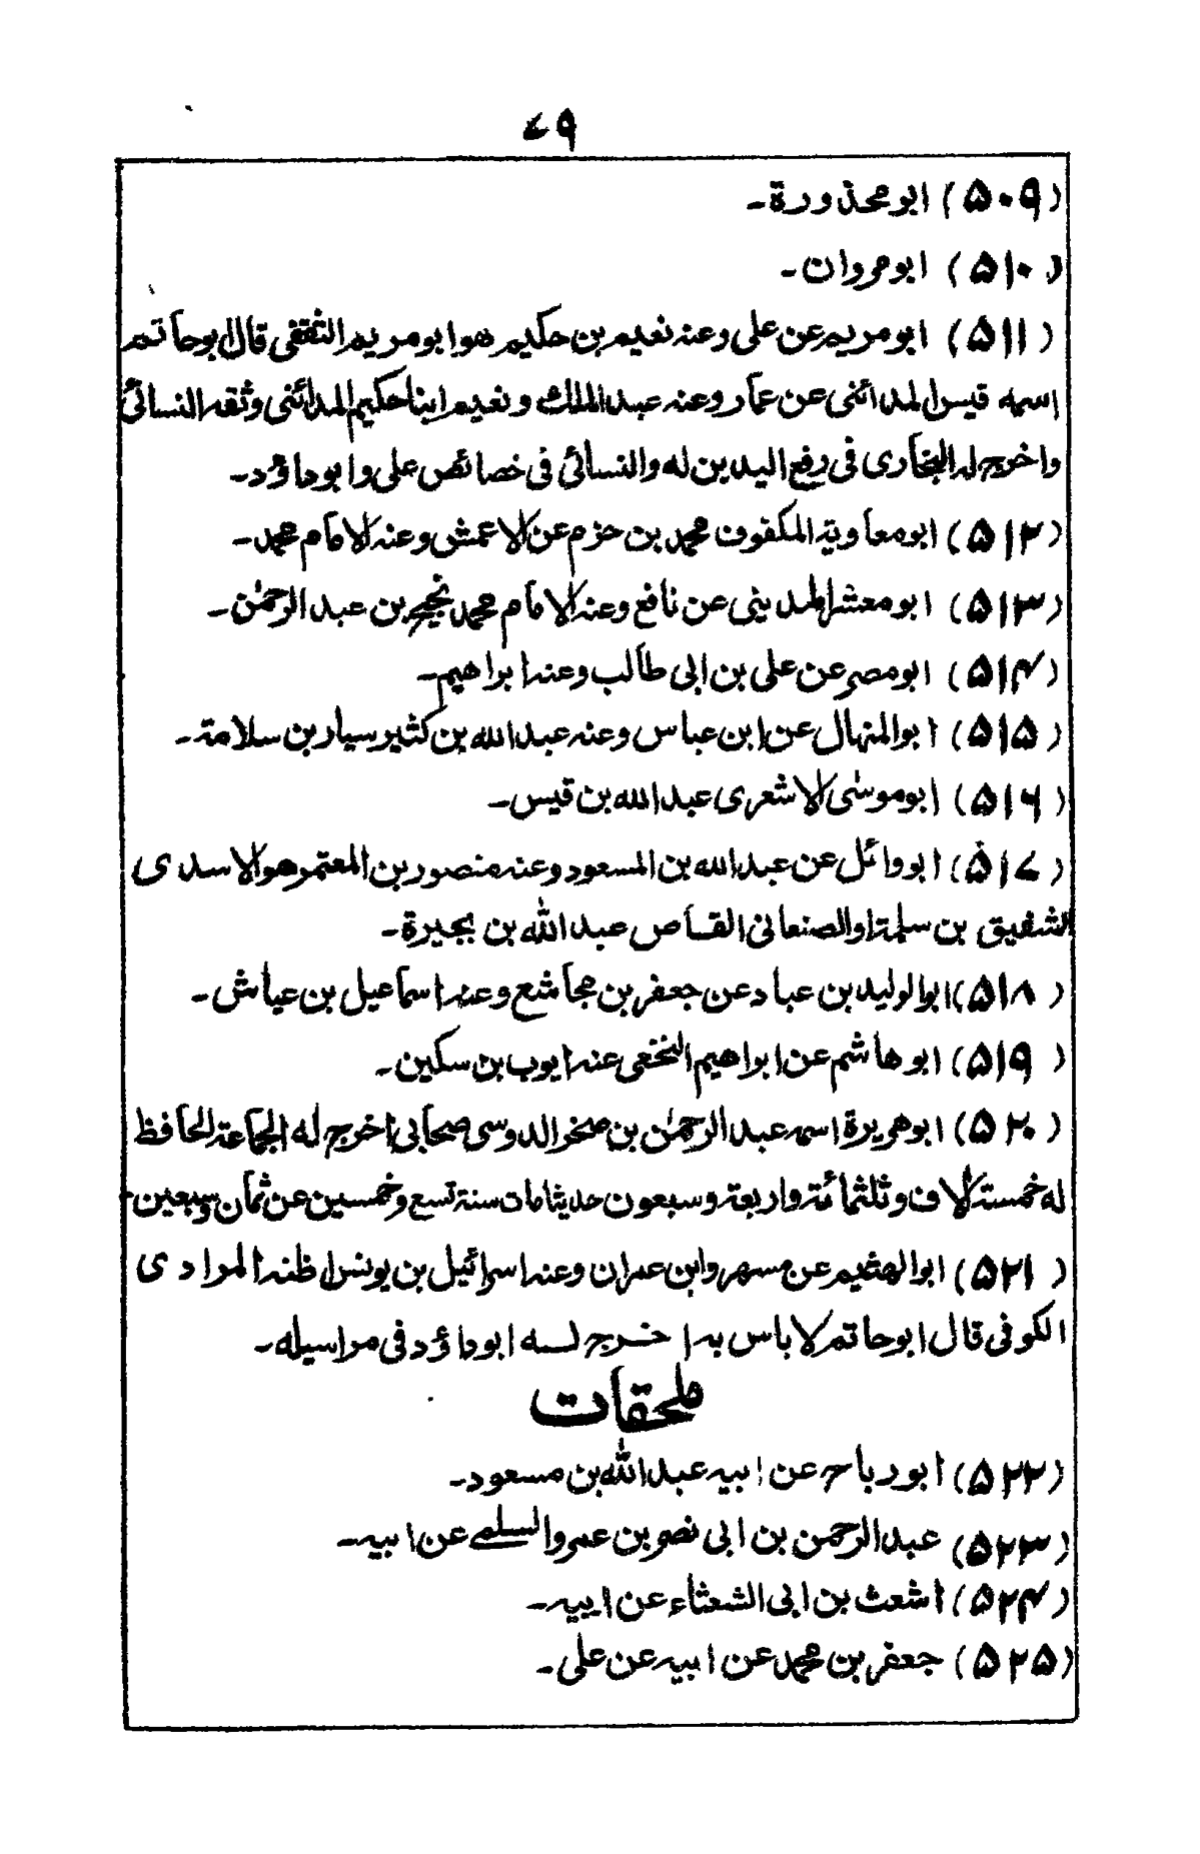 ۷۹
(۵۰۹) ابومحذورة۔
(۵۱۰) ابومروان۔
(۵۱۱) ابومريم عن على وعنه نعيم بن حكيم هوابومريم الثقفى قال ابوحاتم
اسمه قيس المدائنى عن عمار وعنه عبدالملك ونعيم ابناحكيم المدائنى وثقه النسائى
واخرج له البخارى فى رفع اليدين له والنسائى فى خصائص على وابوداؤد۔
(۵۱۲) ابومعاوية المكفوف محمد بن حزم عن الاعمش وعنه الامام محمد۔
(۵۱۳) ابومعشر المدينى عن نافع وعنه الامام محمد نجيح بن عبدالرحمٰن۔
(۵۱۴) ابومصر عن على بن ابى طالب وعنه ابراهيم۔
(۵۱۵) ابوالمنهال عن ابن عباس وعنه عبدالله بن كثير سيار بن سلامة۔
(۵۱۶) ابوموسٰى الاشعرى عبدالله بن قيس۔
(۵۱۷) ابووائل عن عبدالله بن المسعود وعنه منصور بن المعتمر هوالاسدى
الشفيق بن سلمة اوالصنعانى القاص عبدالله بن بجيرة۔
(۵۱۸) ابوالوليد بن عباد عن جعفر بن مجاشع وعنه اسماعيل بن عياش۔
(۵۱۹) ابوهاشم عن ابراهيم النخعى عنه ايوب بن سكين۔
(۵۲۰) ابوهريرة اسمه عبدالرحمٰن بن صخر الدوسى صحابى اخرج له الجماعة الحافظ
له خمسة الاف وثلثمائة واربعة وسبعون حديثا مات سنة تسع وخمسين عن ثمان وسبعين۔
(۵۲۱) ابوالهثيم عن مسهر وابن عمران وعنه اسرائيل بن يونس اظنه المرادى
الكوفى قال ابوحاتم لاباس به اخرج له ابوداؤد فى مراسيله۔
ملحقات
(۵۲۲) ابورباح عن ابيه عبدالله بن مسعود۔
(۵۲۳) عبدالرحمن بن ابى نصر بن عمرو السلمے عن ابيه۔
(۵۲۴) اشعث بن ابى الشعثاء عن ابيه۔
(۵۲۵) جعفر بن محمد عن ابيه عن على۔